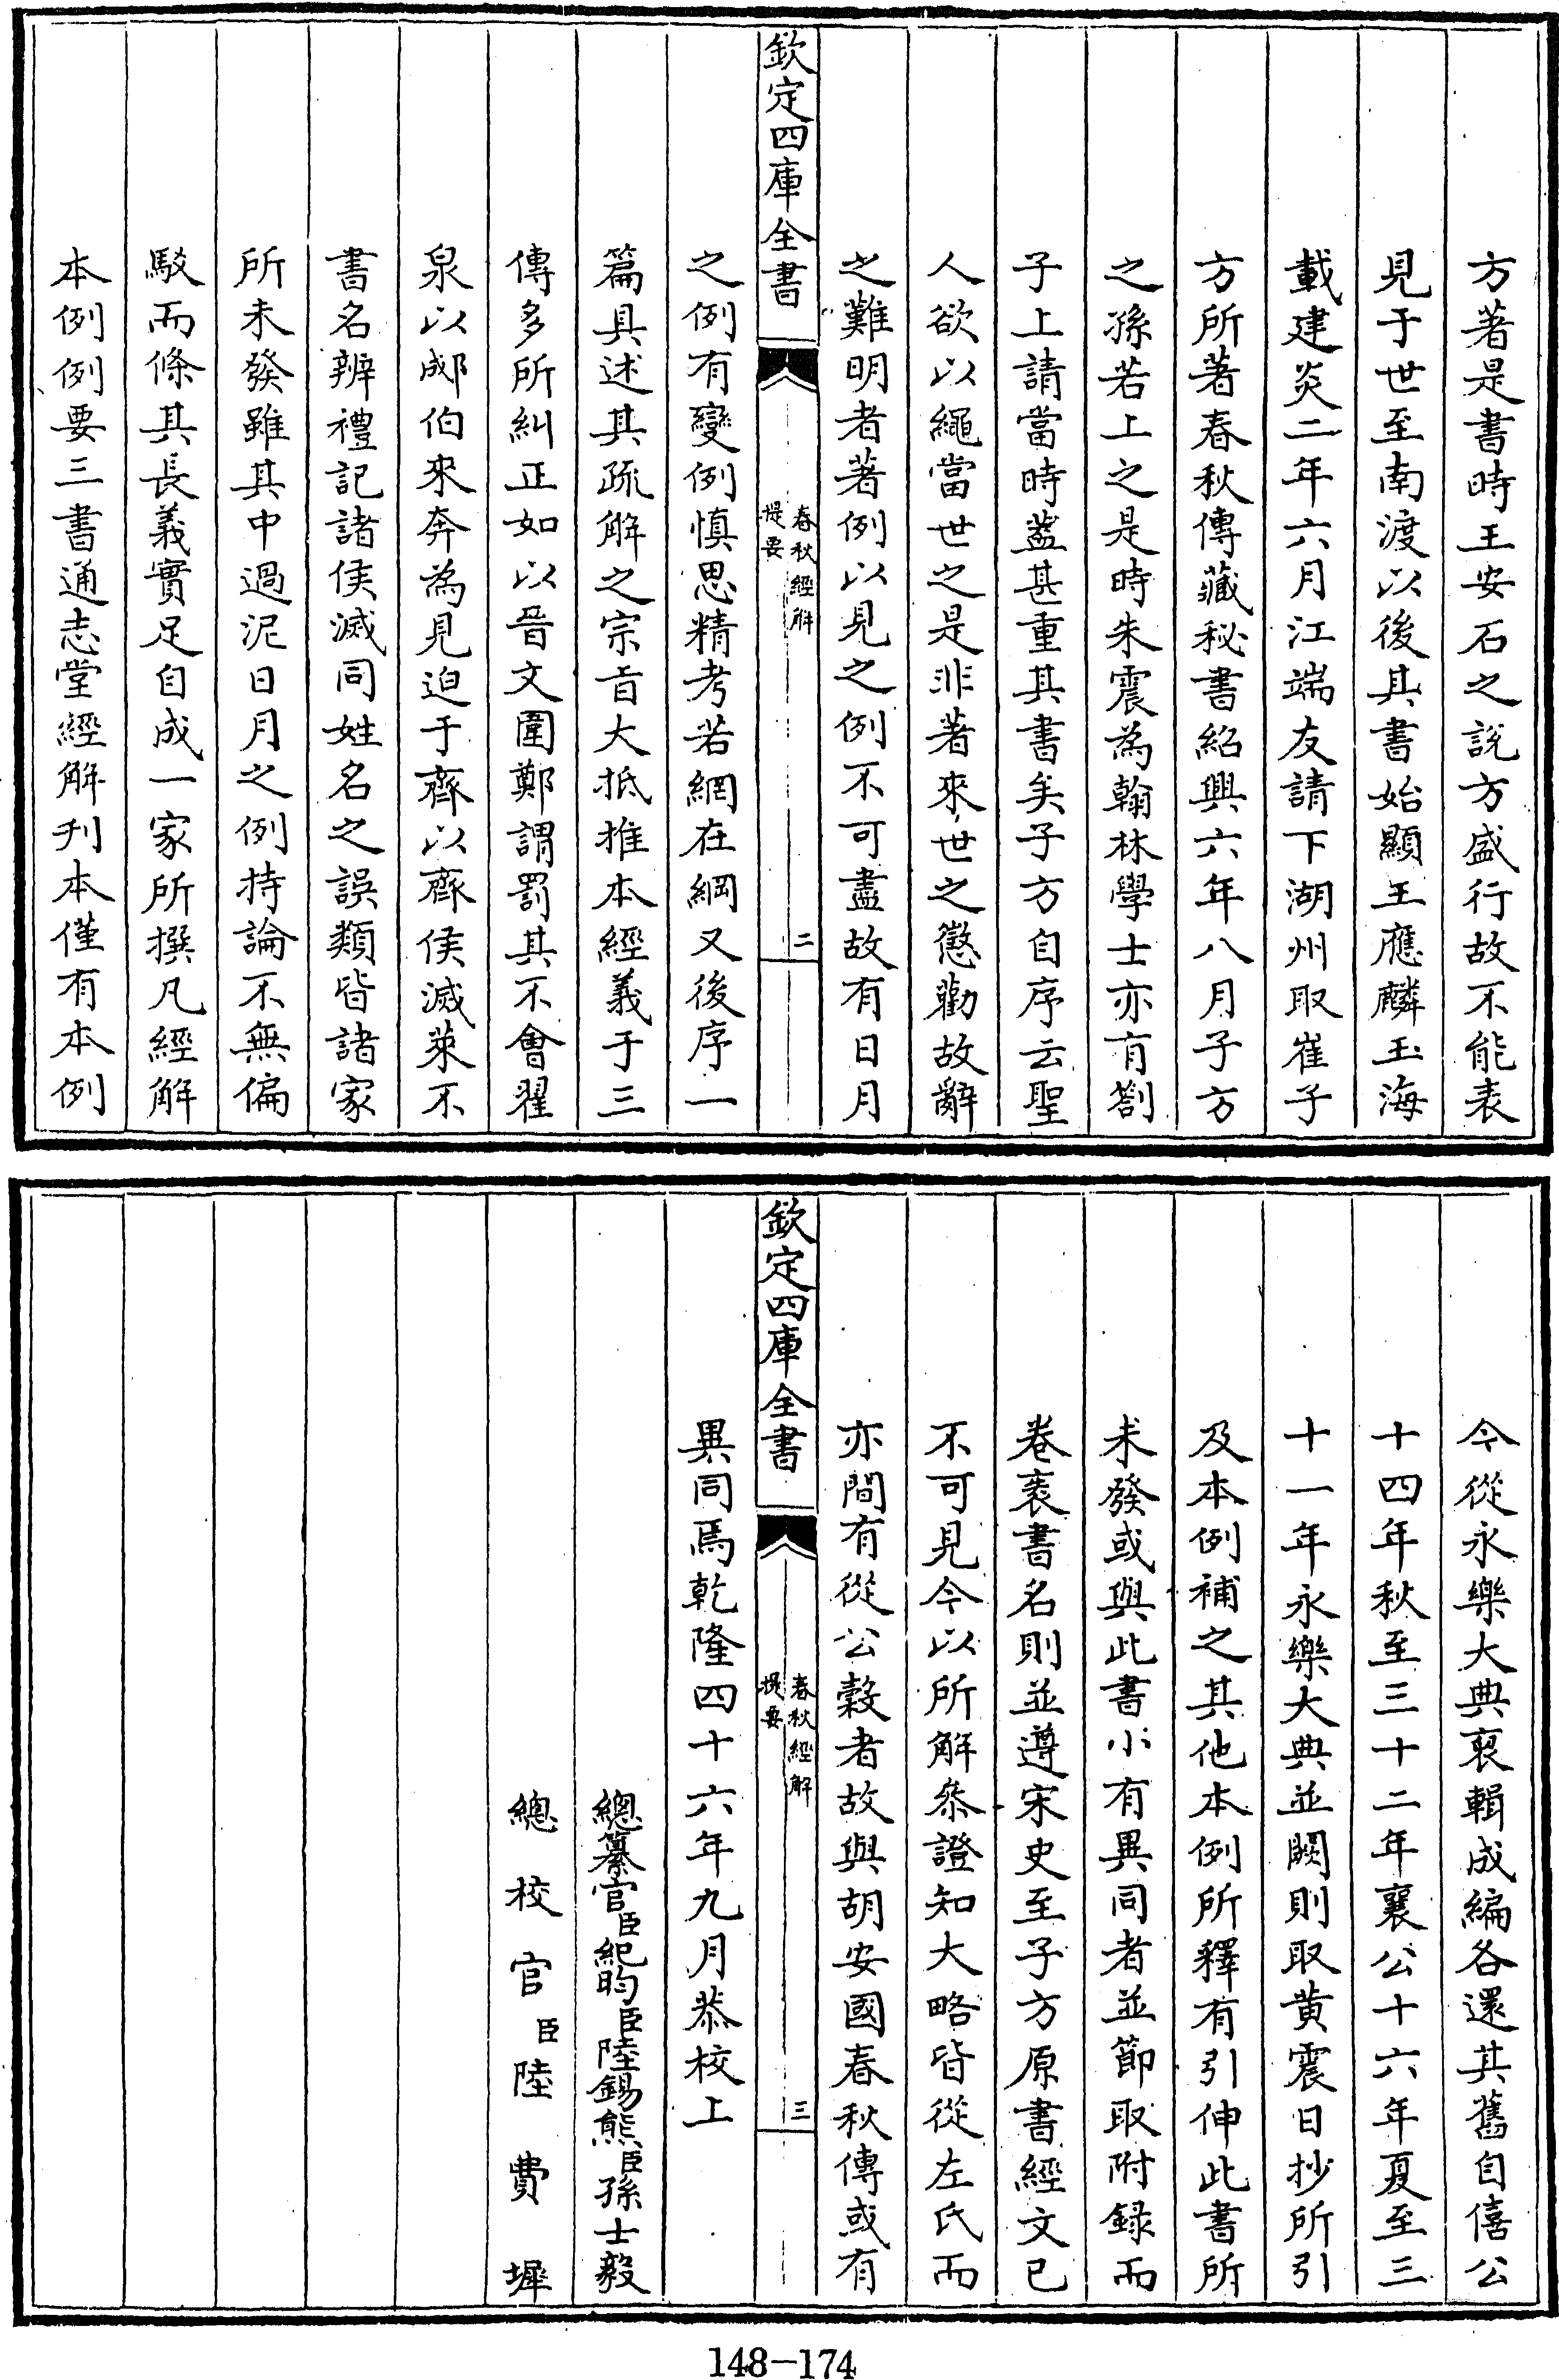 方著是書時王安石之說方盛行故不能表
見于世至南渡以後其書始顯王應麟玉海
載建炎二年六月江端友請下湖州取崔子
方所著春秋傳藏秘書紹興六年八月子方
之孫若上之是時朱震為翰林學士亦有劄
子上請當時葢甚重其書矣子方自序云聖
人欲以繩當世之是非著來世之懲勸故辭
之難明者著例以見之例不可盡故有日月
欽定四庫全書
春秋經解
提要
二
之例有變例慎思精考若網在綱又後序一
篇具述其疏解之宗旨大抵推本經義于三
傳多所糾正如以晉文圍鄭謂罰其不會翟
泉以郕伯來奔為見迫于齊以齊侯滅萊不
書名辨禮記諸侯滅同姓名之誤類皆諸家
所未發雖其中過泥日月之例持論不無偏
駮而條其長義實足自成一家所撰凡經解
本例例要三書通志堂經解刋本僅有本例
今從永樂大典裒輯成編各還其舊自僖公
十四年秋至三十二年襄公十六年夏至三
十一年永樂大典並闕則取黄震日抄所引
及本例補之其他本例所釋有引伸此書所
未發或與此書小有異同者並節取附録而
卷袠書名則並遵宋史至子方原書經文已
不可見今以所解叅證知大略皆從左氏而
亦間有從公縠者故與胡安國春秋傳或有
欽定四庫全書
春秋經解
提要
三
異同焉乾隆四十六年九月恭校上
總纂官臣紀昀臣陸錫熊臣孫士毅
總校官臣陸費墀
148-174